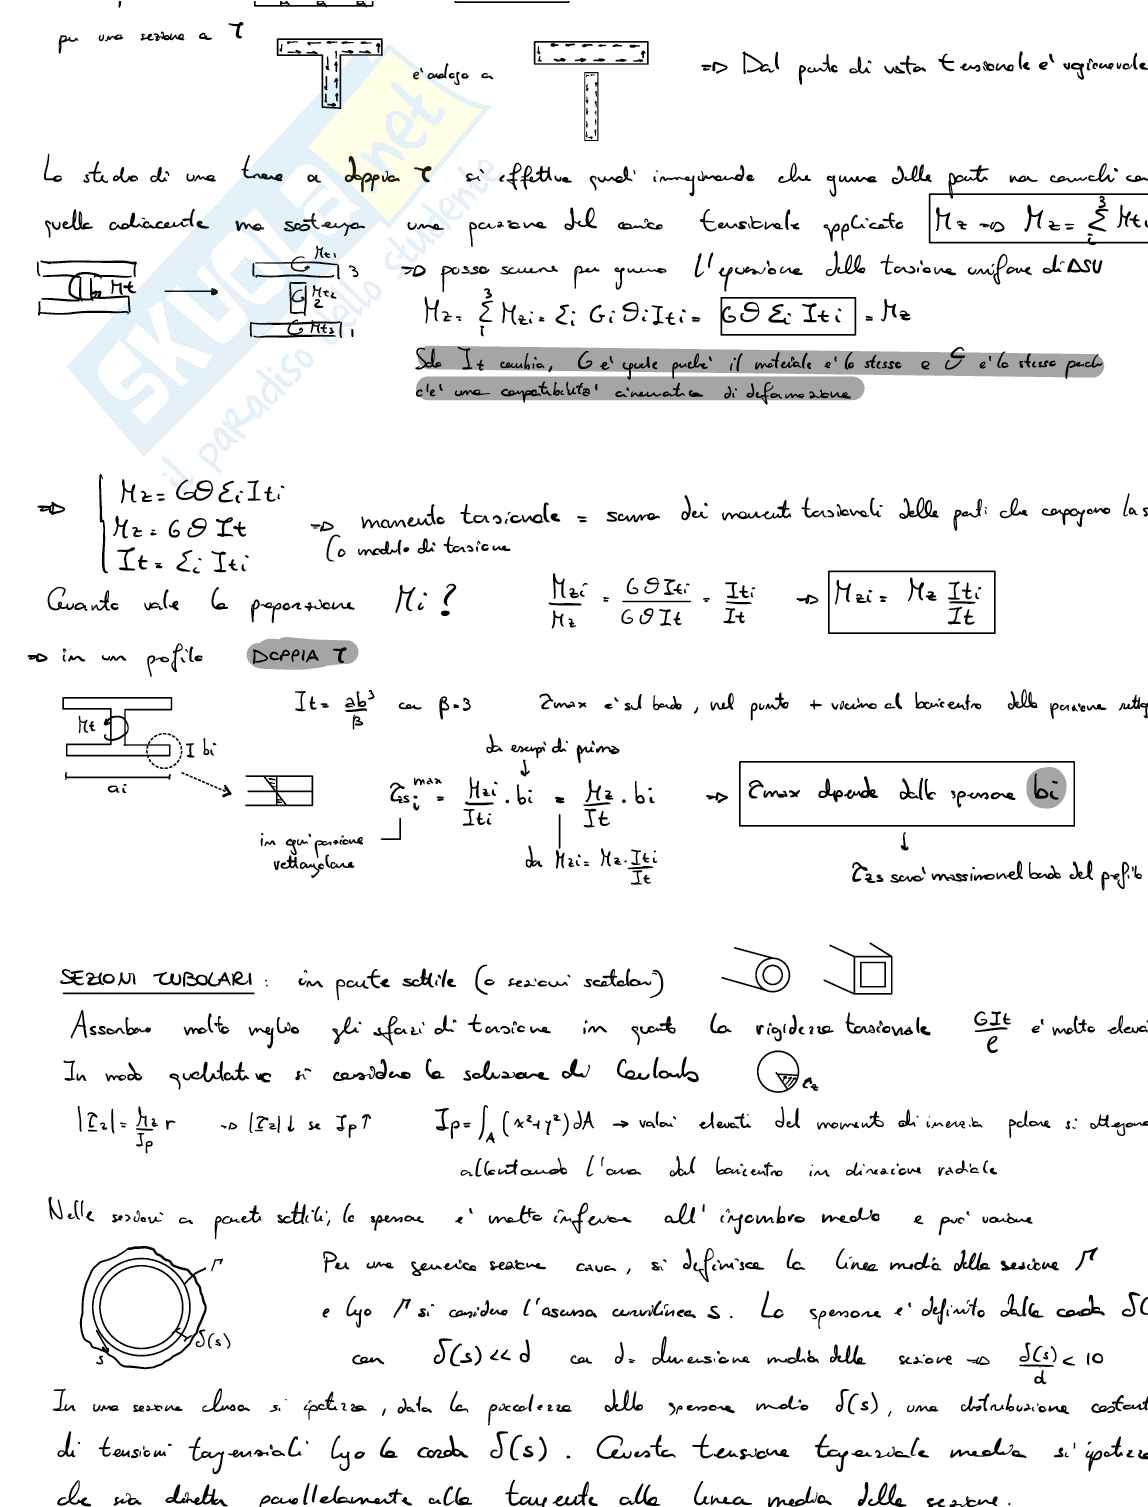 per una sezione a T
è analogo a
=> Dal punto di vista tensionale è ragionevole
Lo studio di una trave a doppia T si effettua quindi immaginando che ognuna delle parti non comunichi con
quella adiacente ma sostenga una porzione del carico tensionale applicato Mz => Mz = Σ_i^3 Mti
Mt
Mt1 3
Mt2 2
Mt3 1
=> posso scrivere per ognuno l'equazione della torsione uniforme di DSV
Mz = Σ_i^3 Mzi = Σi Gi θi Iti = Gθ Σi Iti = Mz
Solo It cambia, G è uguale perchè il materiale è lo stesso e θ è lo stesso perchè
c'è una compatibilità cinematica di deformazione
SKUOLA.net
il paradiso dello studente
=> Mz = Gθ Σi Iti
Mz = Gθ It
It = Σi Iti
=> momento torsionale = somma dei momenti torsionali delle parti che compongono la s
(o modulo di torsione
Quanto vale la proporzione Mi?
Mzi/Mz = GθIti/GθIt = Iti/It => Mzi = Mz Iti/It
=> in un profilo DOPPIA T
Mt
bi
ai
It = ab³/β con β=3
τmax è sul bordo, nel punto + vicino al baricentro della porzione rettg
da esempi di prima
τzs i max = Mzi/Iti · bi = Mz/It · bi => τmax dipende dallo spessore bi
in ogni porzione
rettangolare
da Mzi = Mz · Iti/It
τzs sarà massimo nel bordo del profilo
SEZIONI TUBOLARI: in parete sottile (o sezioni scatolari)
Assorbono molto meglio gli sforzi di torsione in quanto la rigidezza torsionale GIt/l è molto eleva
In modo qualitativo si considera la soluzione di Coulomb
τz
|τz| = Mz/Ip r -> |τz|↓ se Ip↑
Ip = ∫_A (x²+y²) dA -> valori elevati del momento di inerzia polare si ottengono
allontanando l'area dal baricentro in direzione radiale
Nelle sezioni a pareti sottili, lo spessore è molto inferiore all'ingombro medio e può variare
Γ
δ(s)
s
Per una generica sezione cava, si definisce la linea media della sezione Γ
e lungo Γ si considera l'ascissa curvilinea s. Lo spessore è definito dalla corda δ(
con δ(s) << d con d = dimensione media della sezione => δ(s)/d < 10
In una sezione chiusa si ipotizza, data la piccolezza dello spessore medio δ(s), una distribuzione costant
di tensioni tangenziali lungo la corda δ(s). Questa tensione tangenziale media si ipotizza
che sia diretta parallelamente alla tangente alla linea media della sezione.